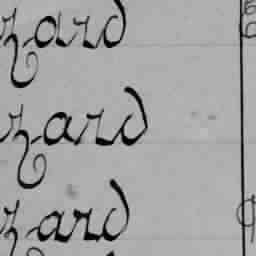 zard
zard
zard